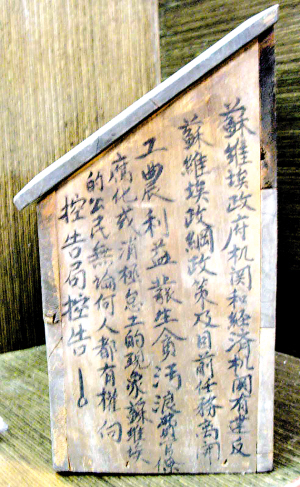 蘇維埃政府机関和經济机関有違反
蘇維埃政綱政策及目前任務离開
工農利益發生貪污浪費官僚
腐化或消極怠工的現象蘇維埃
的公民無論何人都有權向
控告局控告